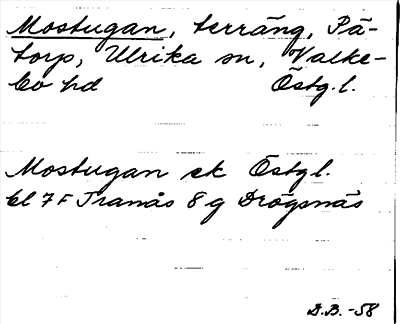 Mostugan, terräng, På-
torp, Ulrika sn, Valke-
bo hd Östg.l.
Mostugan ek Östgl.
bl 7F Tranås 8g Drögsnäs
D.B. -58